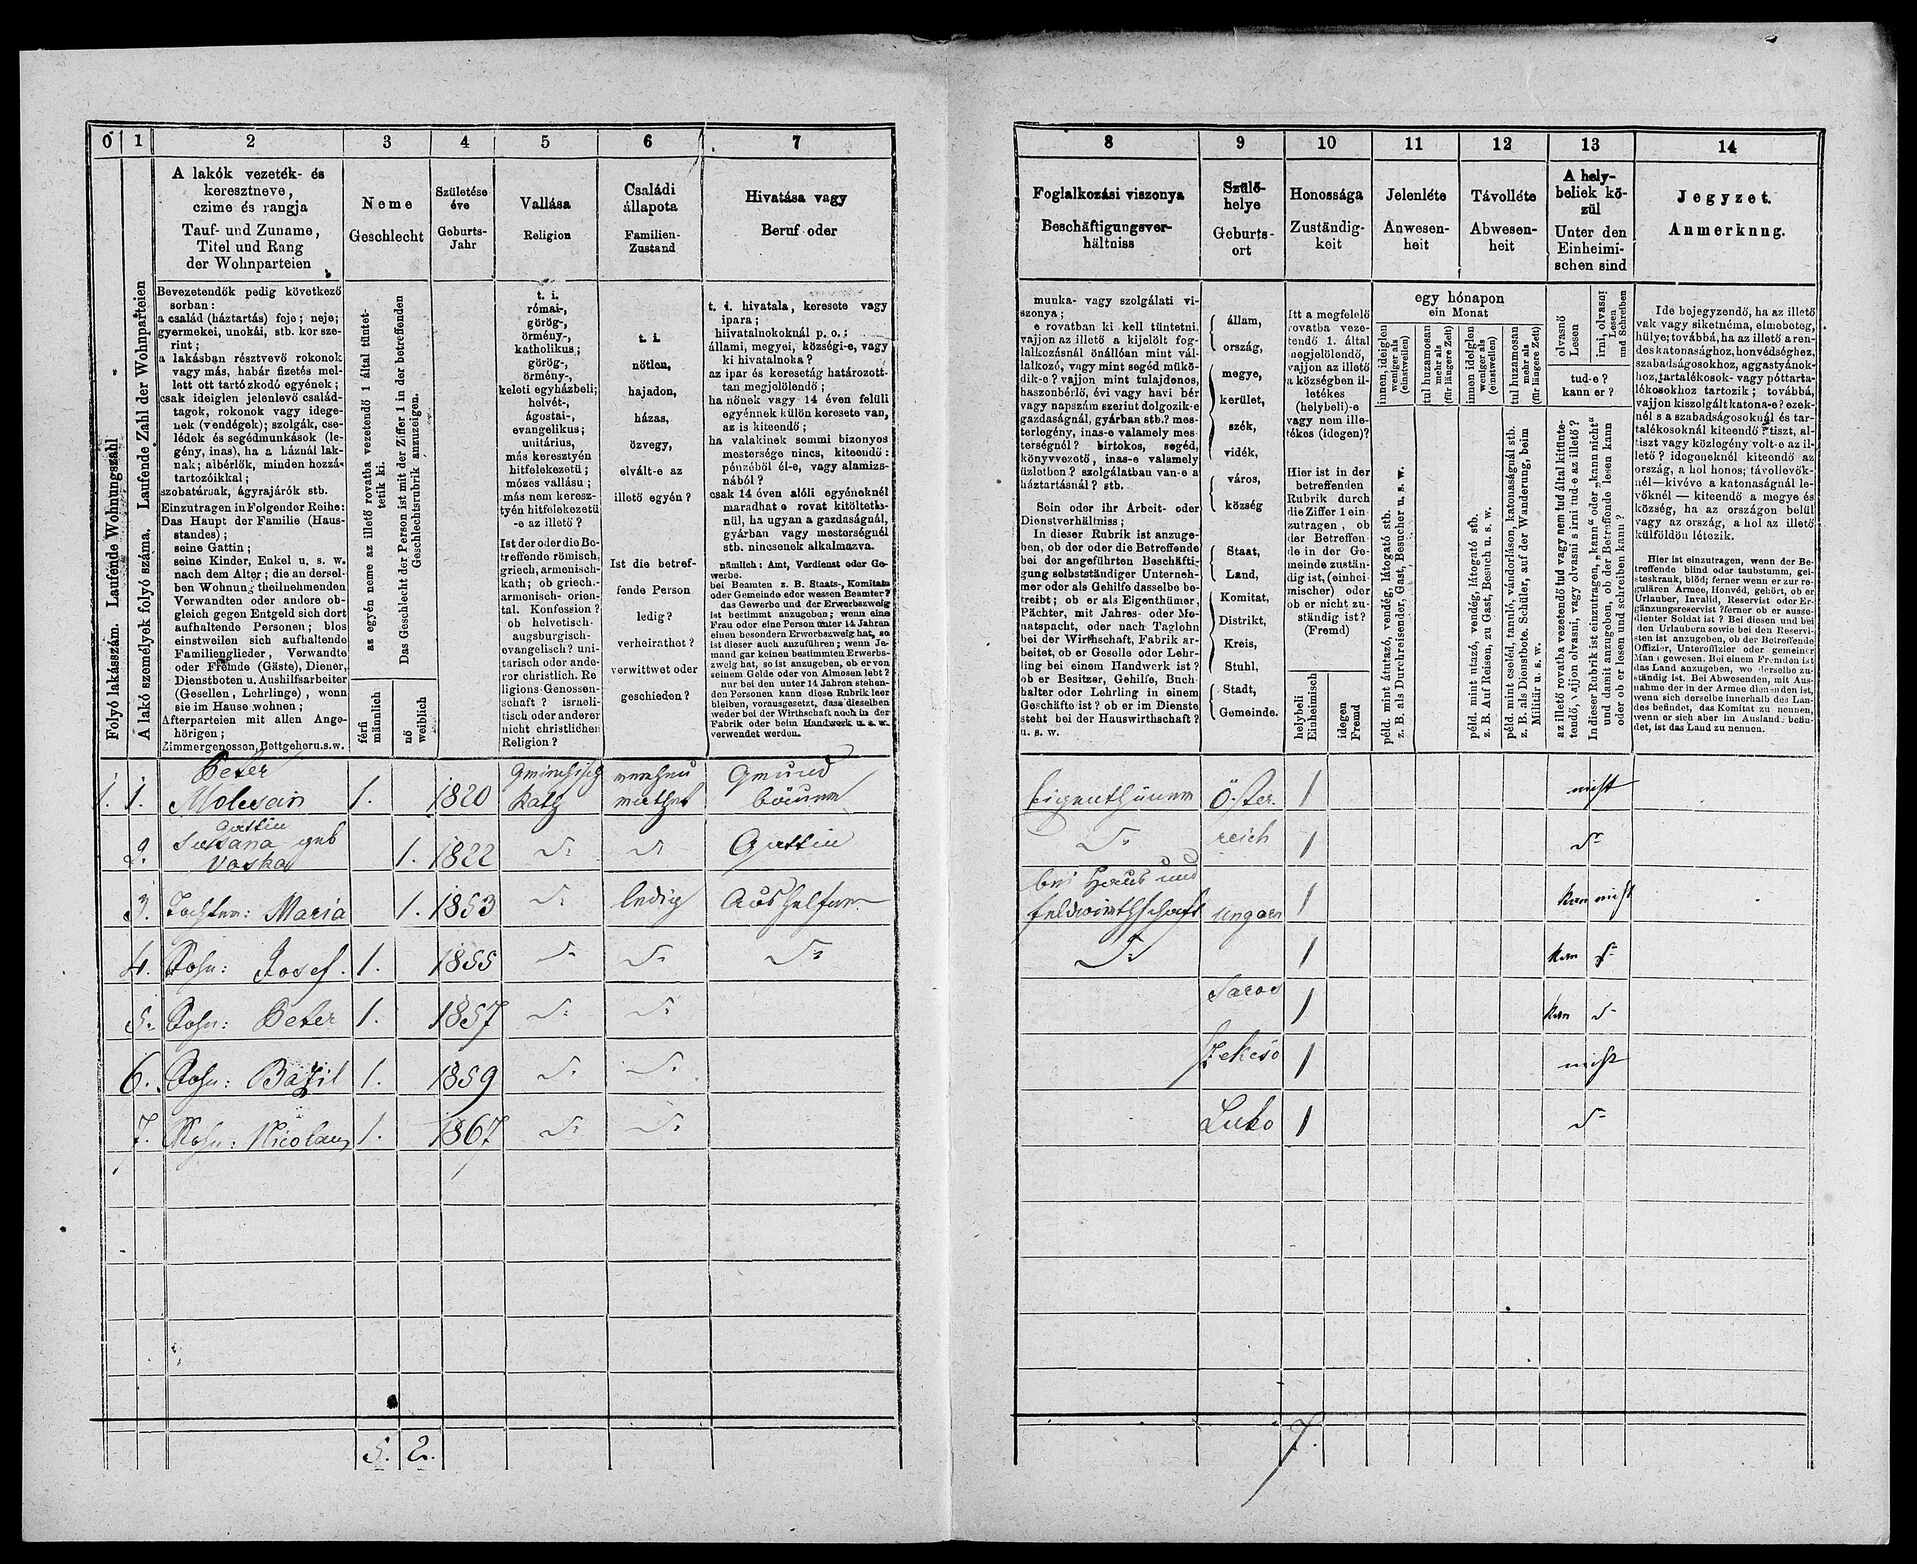 0 1 2 3 4 5 6 7
A lakók vezeték- és
keresztneve,
czime és rangja
Tauf- und Zuname,
Titel und Rang
der Wohnparteien
Neme
Geschlecht
Születése
éve
Geburts-
Jahr
Vallása
Religion
Családi
állapota
Familien-
Zustand
Hivatása vagy
Beruf oder
Folyó lakásszám. Laufende Wohnungszahl
A lakó személyek folyó száma. Laufende Zahl der Wohnparteien
Bevezetendők pedig következő
sorban:
a család (háztartás) feje; neje;
gyermekei, unokái, stb. kor sze-
rint;
a lakásban résztvevő rokonok
vagy más, habár fizetés mel-
lett ott tartózkodó egyének;
csak ideiglen jelenlevő család-
tagok, rokonok vagy idege-
nek (vendégek); szolgák, cse-
lédek és segédmunkások (le-
gény, inas), ha a háznál lak-
nak; albérlők, minden hozzá-
tartozóikkal;
szobatársak, ágyrajárók stb.
Einzutragen in Folgender Reihe:
Das Haupt der Familie (Haus-
standes);
seine Gattin;
seine Kinder, Enkel u. s. w.
nach dem Alter; die an dersel-
ben Wohnung theilnehmenden
Verwandten oder andere ob-
gleich gegen Entgeld sich dort
aufhaltende Personen; blos
einstweilen sich aufhaltende
Familienglieder, Verwandte
oder Fremde (Gäste), Diener,
Dienstboten u. Aushilfsarbeiter
(Gesellen, Lehrlinge), wenn
sie im Hause wohnen;
Afterparteien mit allen Ange-
hörigen;
Zimmergenossen, Bettgeher u. s. w.
az egyén neme az illető rovatba vezetendő 1 által tüntet-
tetik ki.
Das Geschlecht der Person ist mit der Ziffer 1 in der betreffenden
Geschlechtsrubrik anzuzeigen.
férfi
männlich
nő
weiblich
t. i.
római-,
görög-,
örmény-,
katholikus;
görög-,
örmény-,
keleti egyházbeli;
helvét-,
ágostai-,
evangelikus;
unitárius,
más keresztyén
hitfelekezetü;
mózes vallásu;
más nem keresz-
tyén hitfelekezetü
-e az illető?
Ist der oder die Be-
treffende römisch,
griech, armenisch-
kath; ob griech.
armenisch- orien-
tal. Konfession?
ob helvetisch-
augsburgisch-
evangelisch? uni-
tarisch oder ande-
rer christlich. Re
ligions-Genossen-
schaft? israeli-
tisch oder anderer
nicht christlichen
Religion?
t. i.
nőtlen,
hajadon,
házas,
özvegy,
elvált-e az
illető egyén?
Ist die betref-
fende Person
ledig?
verheirathet?
verwittwet oder
geschieden?
t. i. hivatala, keresete vagy
ipara;
hiivatalnokoknál p. o.:
állami, megyei, községi-e, vagy
ki hivatalnoka?
az ipar és keresetág határozott-
tan megjelölendő;
ha nőnek vagy 14 éven felüli
egyénnek külön keresete van,
az is kiteendő;
ha valakinek semmi bizonyos
mestersége nincs, kiteendő:
pénzéből él-e, vagy alamizs-
nából?
csak 14 éven alóli egyéneknél
maradhat e rovat kitöltetle-
nül, ha ugyan a gazdaságnál,
gyárban vagy mesterségnél
stb. nincsenek alkalmazva.
nämlich: Amt, Verdienst oder Ge-
werbe.
bei Beamten z. B. Staats-, Komitats
oder Gemeinde oder wessen Beamter?
das Gewerbe und der Erwerbszweig
ist bestimmt anzugeben; wenn eine
Frau oder eine Person unter 14 Jahren
einen besondern Erwerbszweig hat, so
ist dieser auch anzuführen; wenn Je-
mand gar keinen bestimmten Erwerbs-
zweig hat, so ist anzugeben, ob er von
seinem Gelde oder von Almosen lebt?
nur bei den unter 14 Jahren stehen-
den Personen kann diese Rubrik leer
bleiben, vorausgesetzt, dass dieselben
weder bei der Wirthschaft noch in der
Fabrik oder beim Handwerk u. s. w.
verwendet werden.
8 9 10 11 12 13 14
Foglalkozási viszonya
Beschäftigungsver-
hältniss
Szülő-
helye
Geburts-
ort
Honossága
Zuständig-
keit
Jelenléte
Anwesen-
heit
Távolléte
Abwesen-
heit
A hely-
beliek kö-
zül
Unter den
Einheimi-
schen sind
Jegyzet.
Anmerknng.
munka- vagy szolgálati vi-
szonya;
e rovatban ki kell tüntetni.
vajjon az illető a kijelölt fog-
lalkozásnál önállóan mint vál-
lalkozó, vagy mint segéd mükö-
dik-e? vajjon mint tulajdonos,
haszonbérlő, évi vagy havi bér
vagy napszám szerint dolgozik-e
gazdaságnál, gyárban stb.? mes-
terlegény, inas-e valamely mes-
terségnél? birtokos, segéd,
könyvvezető, inas-e valamely
üzletben? szolgálatban van-e a
háztartásnál? stb.
Sein oder ihr Arbeit- oder
Dienstverhältniss;
In dieser Rubrik ist anzuge-
ben, ob der oder die Betreffende
bei der angeführten Beschäfti-
gung selbstständiger Unterneh-
mer oder als Gehilfe dasselbe be-
treibt; ob er als Eigenthümer,
Pächter, mit Jahres- oder Mo-
natspacht, oder nach Taglohn
bei der Wirthschaft, Fabrik ar-
beitet, ob er Geselle oder Lehr-
ling bei einem Handwerk ist?
ob er Besitzer, Gehilfe, Buch-
halter oder Lehrling in einem
Geschäfte ist? ob er im Dienste
steht bei der Hauswirthschaft?
u. s. w.
állam,
ország,
megye,
kerület,
szék,
vidék,
város,
község
Staat,
Land,
Komitat,
Distrikt,
Kreis,
Stuhl,
Stadt,
Gemeinde.
Itt a megfelelő
rovatba veze-
tendő 1. által
megjelölendő,
vajjon az illető
a községben il-
letékes
(helybeli)-e
vagy nem ille-
tékes (idegen)?
Hier ist in der
betreffenden
Rubrik durch
die Ziffer 1 ein
zutragen, ob
der Betreffen-
de in der Ge-
meinde zustän-
dig ist, (einhei-
mischer) oder
ob er nicht zu-
ständig ist?
(Fremd)
helybeli
Einheimisch
idegen
Fremd
egy hónapon
ein Monat
innen, ideiglen
weniger als
(einstweilen)
tul huzamosan
mehr als
(für längere Zeit)
innen ideiglen
weniger als
(einstweilen)
tul huzamosan
mehr als
(für längere Zeit)
péld. mint átutazó, vendég, látogató stb.
z. B. als Durchreisender, Gast, Besucher u. s. w.
péld. mint utazó, vendég, látogató stb.
z. B. Auf Reisen, zu Gast, Besuch u. s. w.
péld. mint cseléd, tanuló, vándorláson, katonaságnál stb.
z. B. als Dienstbote, Schüler, auf der Wanderung, beim
Militär u. s. w.
olvasnö
Lesen
irni, olvasni
Lesen
und Schreiben
tud-e?
kann er?
az illető rovatba vezetendő tud vagy nem tud által kitünte-
tendő, vajjon olvasni, vagy olvasni s irni tud-e az illető?
In dieser Rubrik ist einzutragen „kann“ oder „kann nicht“
und damit anzugeben, ob der Betreffende lesen kann
oder ob er lesen und schreiben kann?
Ide bejegyzendő, ha az illető
vak vagy siketnéma, elmebeteg,
hülye; továbbá, ha az illető a ren-
des katonasághoz, honvédséghez,
szabadságosokhoz, aggastyánok-
hoz, tartalékosok- vagy póttarta-
lékosokhoz tartozik; továbbá,
vajjon kiszolgált katona-e? ezek-
nél s a szabadságosoknál és tar-
talékosoknál kiteendő tiszt, al-
tiszt vagy közlegény volt-e az il-
lető? idegeneknél kiteendő az
ország, a hol honos; távollevők-
nél—kivéve a katonaságnál le-
vőknél — kiteendő a megye és
község, ha az országon belül
vagy az ország, a hol az illető
külföldön létezik.
Hier ist einzutragen, wenn der Be-
treffende blind oder taubstumm, gei-
steskrank, blöd; ferner wenn er zur re-
gulären Armee, Honvéd, gehört, ob er
Urlauber, Invalid, Reservist oder Er-
gänzungsreservist? ferner ob er ausge-
dienter Soldat ist? Bei diesen und bei
den Urlaubern sowie bei den Reservi-
sten ist anzugeben, ob der Betreffende
Offizier, Unteroffizier oder gemeiner
Mann gewesen. Bei einem Fremden ist
das Land anzugeben, wo derselbe zu-
ständig ist. Bei Abwesenden, mit Aus-
nahme der in der Armee dienenden ist,
wenn sich derselbe innerhalb des Lan-
des befindet, das Komitat zu nennen,
wenn er sich aber im Ausland befin-
det, ist das Land zu nennen.
1. 1. Peter Molcsan 1. 1820 Kath Grund Eigenthümer Öster. 1 nicht
2. Gattin Susana geb Vaska 1. 1822 Do Do Gattin Do reich 1 Do
3. Tochter: Maria 1. 1853 Do ledig Aushelfer bei Haus und feldwirthschaft Ungarn 1 Kan nicht
4. Sohn: Josef. 1. 1855 Do Do Do Do 1 Kan Do
5. Sohn: Peter 1. 1857 Do Do Saros 1 Kan Do
6. Sohn: Bazil 1. 1859 Do Do 1 nicht
7. Sohn: Nicolaus 1. 1867 Do Do Luko 1 Do
5. 2. 7.